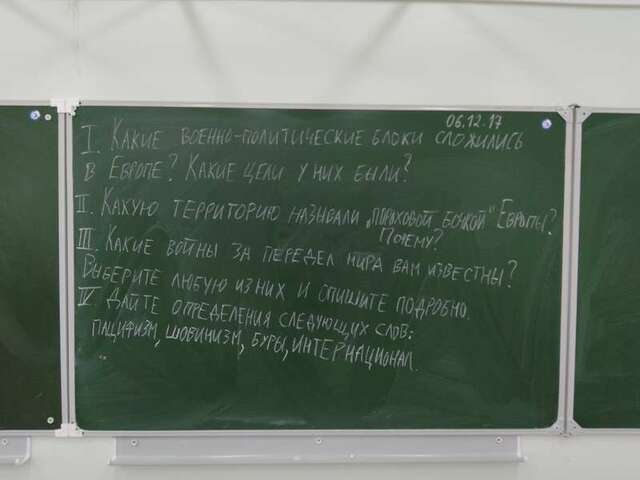 06.12.17
I. Какие военно-политические блоки сложились
в Европе? Какие цели у них были?
II. Какую территорию называли „пороховой бочкой" Европы?
Почему?
III. Какие войны за передел мира вам известны?
Выберите любую из них и опишите подробно.
IV Дайте определения следующих слов:
пацифизм, шовинизм, буры, интернационал.